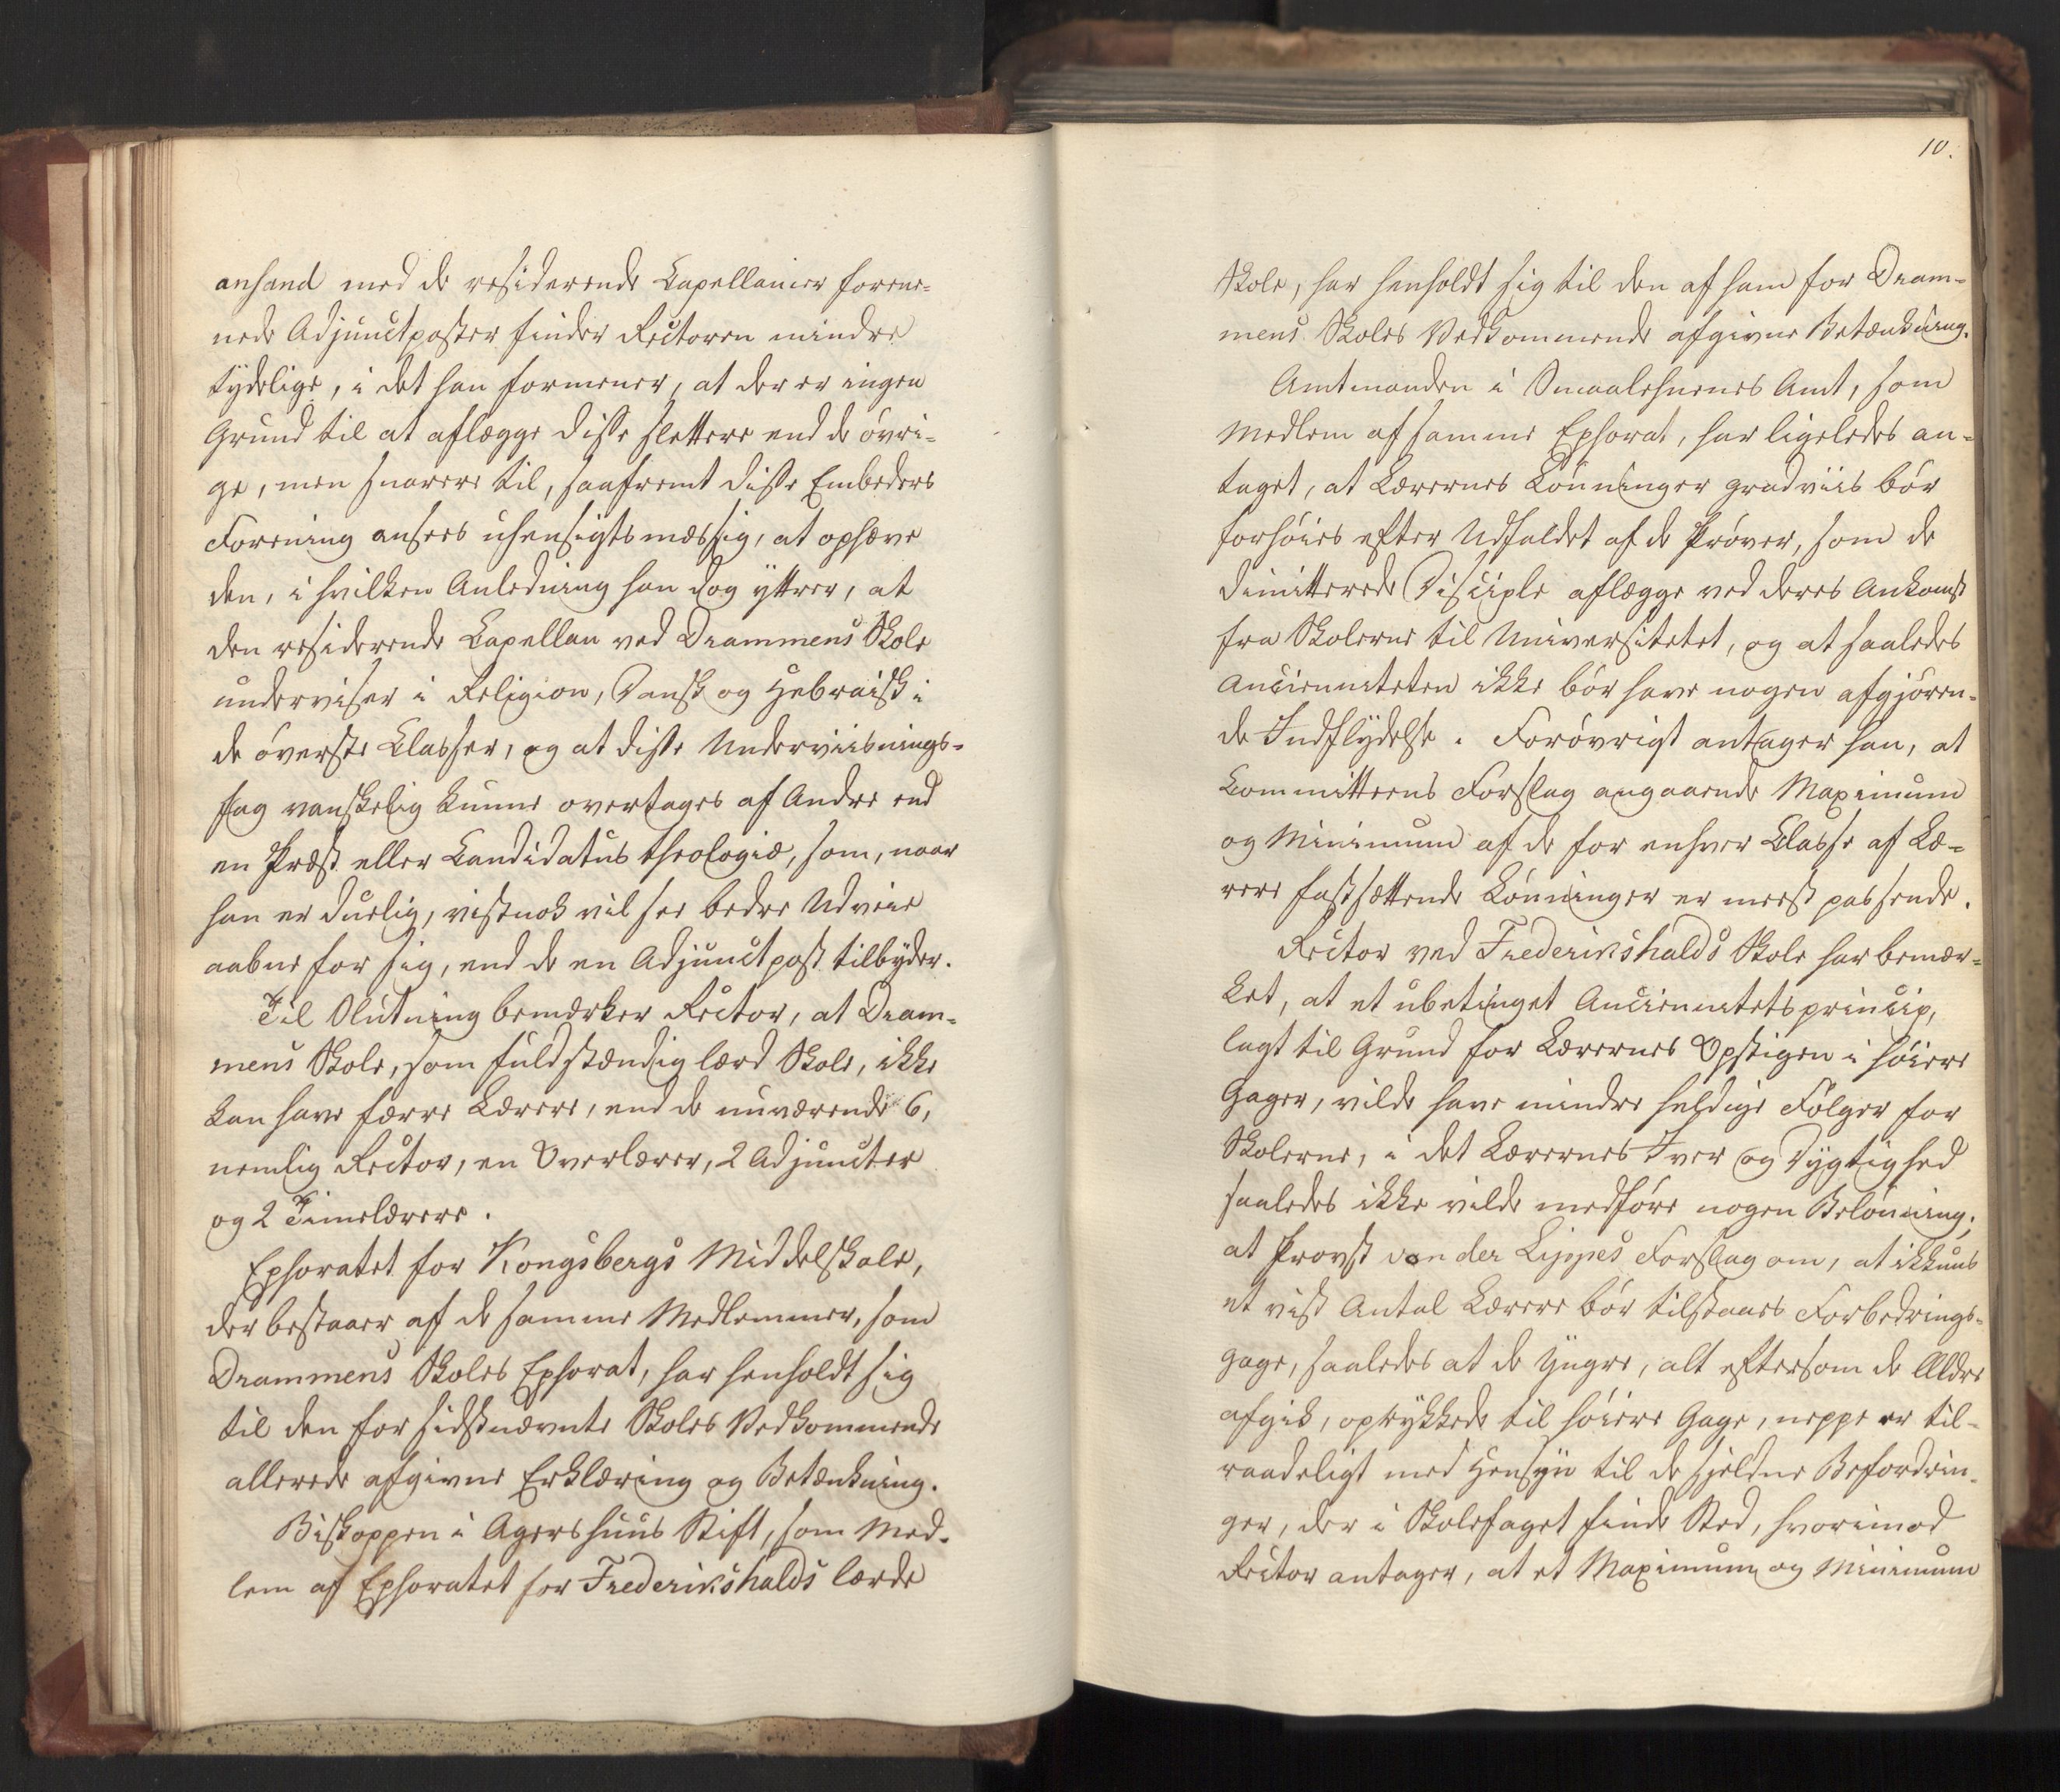 anhand med de residerende Capellanier forene-
nede Adjunctposter finder Rectoren mindre
tydelige, i det han formener, at der er ingen
Grund til at aflægge disse slettere end de øvri-
ge, men snarere til, saafremt disse Embeders
Forening ansees uhensigtsmæssig, at ophæve
den, i hvilken Anledning han dog yttrer, at
den residerende Capellan ved Drammens Skole
underviser i Religion, Dansk og Hebraisk i
de øverste Classer, og at disse Underviisnings-
fag vanskelig kunne overtages af Andre end
en Præst eller Candidatus theologiæ, som, naar
han er duelig, vistnok vil see bedre Udveie
aabne for sig, end de en Adjunctpost tilbyder.
Til Slutning bemærker Rector, at Dram-
mens Skole, som fuldstændig lærd Skole, ikke
kan have færre Lærere, end de nuværende 6,
nemlig Rector, en Overlærer, 2 Adjuncter
og 2 Timelærere.
Ephoratet for Kongsbergs Middelskole,
der bestaaer af de samme Medlemmer, som
Drammens Skoles Ephorat, har henholdt sig
til den for sidstnævnte Skoles Vedkommende
allerede afgivne Erklæring og Betænkning.
Biskoppen i Agershuus Stift, som Med-
lem af Ephoratet for Frederikshalds lærde
10.
Skole, har henholdt sig til den af ham for Dram-
mens Skoles Vedkommende afgivne Betænkning.
Amtmanden i Smaalehnenes Amt, som
Medlem af samme Ephorat, har ligeledes an-
taget, at Lærernes Lønninger gradviis bør
forhøies efter Udfaldet af de Prøver, som de
dimitterede Disciple aflægge ved deres Ankomst
fra Skolerne til Universitetet, og at saaledes
Ancienniteten ikke bør have nogen afgjøren-
de Indflydelse. Forøvrigt antager han, at
Committeens Forslag angaaende Maximum
og Minimum af de for enhver Classe af Læ-
rere fastsættende Lønninger er meest passende.
Rector ved Frederikshalds Skole har bemær-
ket, at et ubetinget Anciennitetsprincip,
lagt til Grund for Lærernes Opstigen i høiere
Gager, vilde have mindre heldige Følger for
Skolerne, i det Lærernes Iver og Dygtighed
saaledes ikke vilde medføre nogen Belønning;
at Provst von der Lippes Forslag om, at ikkuns
et vist Antal Lærere bør tilstaaes Forbedrings-
gage, saaledes at de Yngre, alt eftersom de Ældre
afgik, oprykkede til høiere Gage, neppe er til-
raadeligt med Hensyn til de sjeldne Befordrin-
ger, der i Skolefaget finde Sted, hvorimod
Rector antager, at et Maximum og Minimum